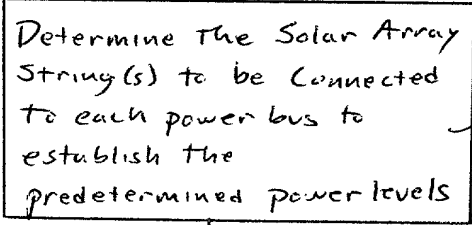 Determine The Solar Array
String(s) to be Connected
to each power bus to
establish the
predetermined power levels